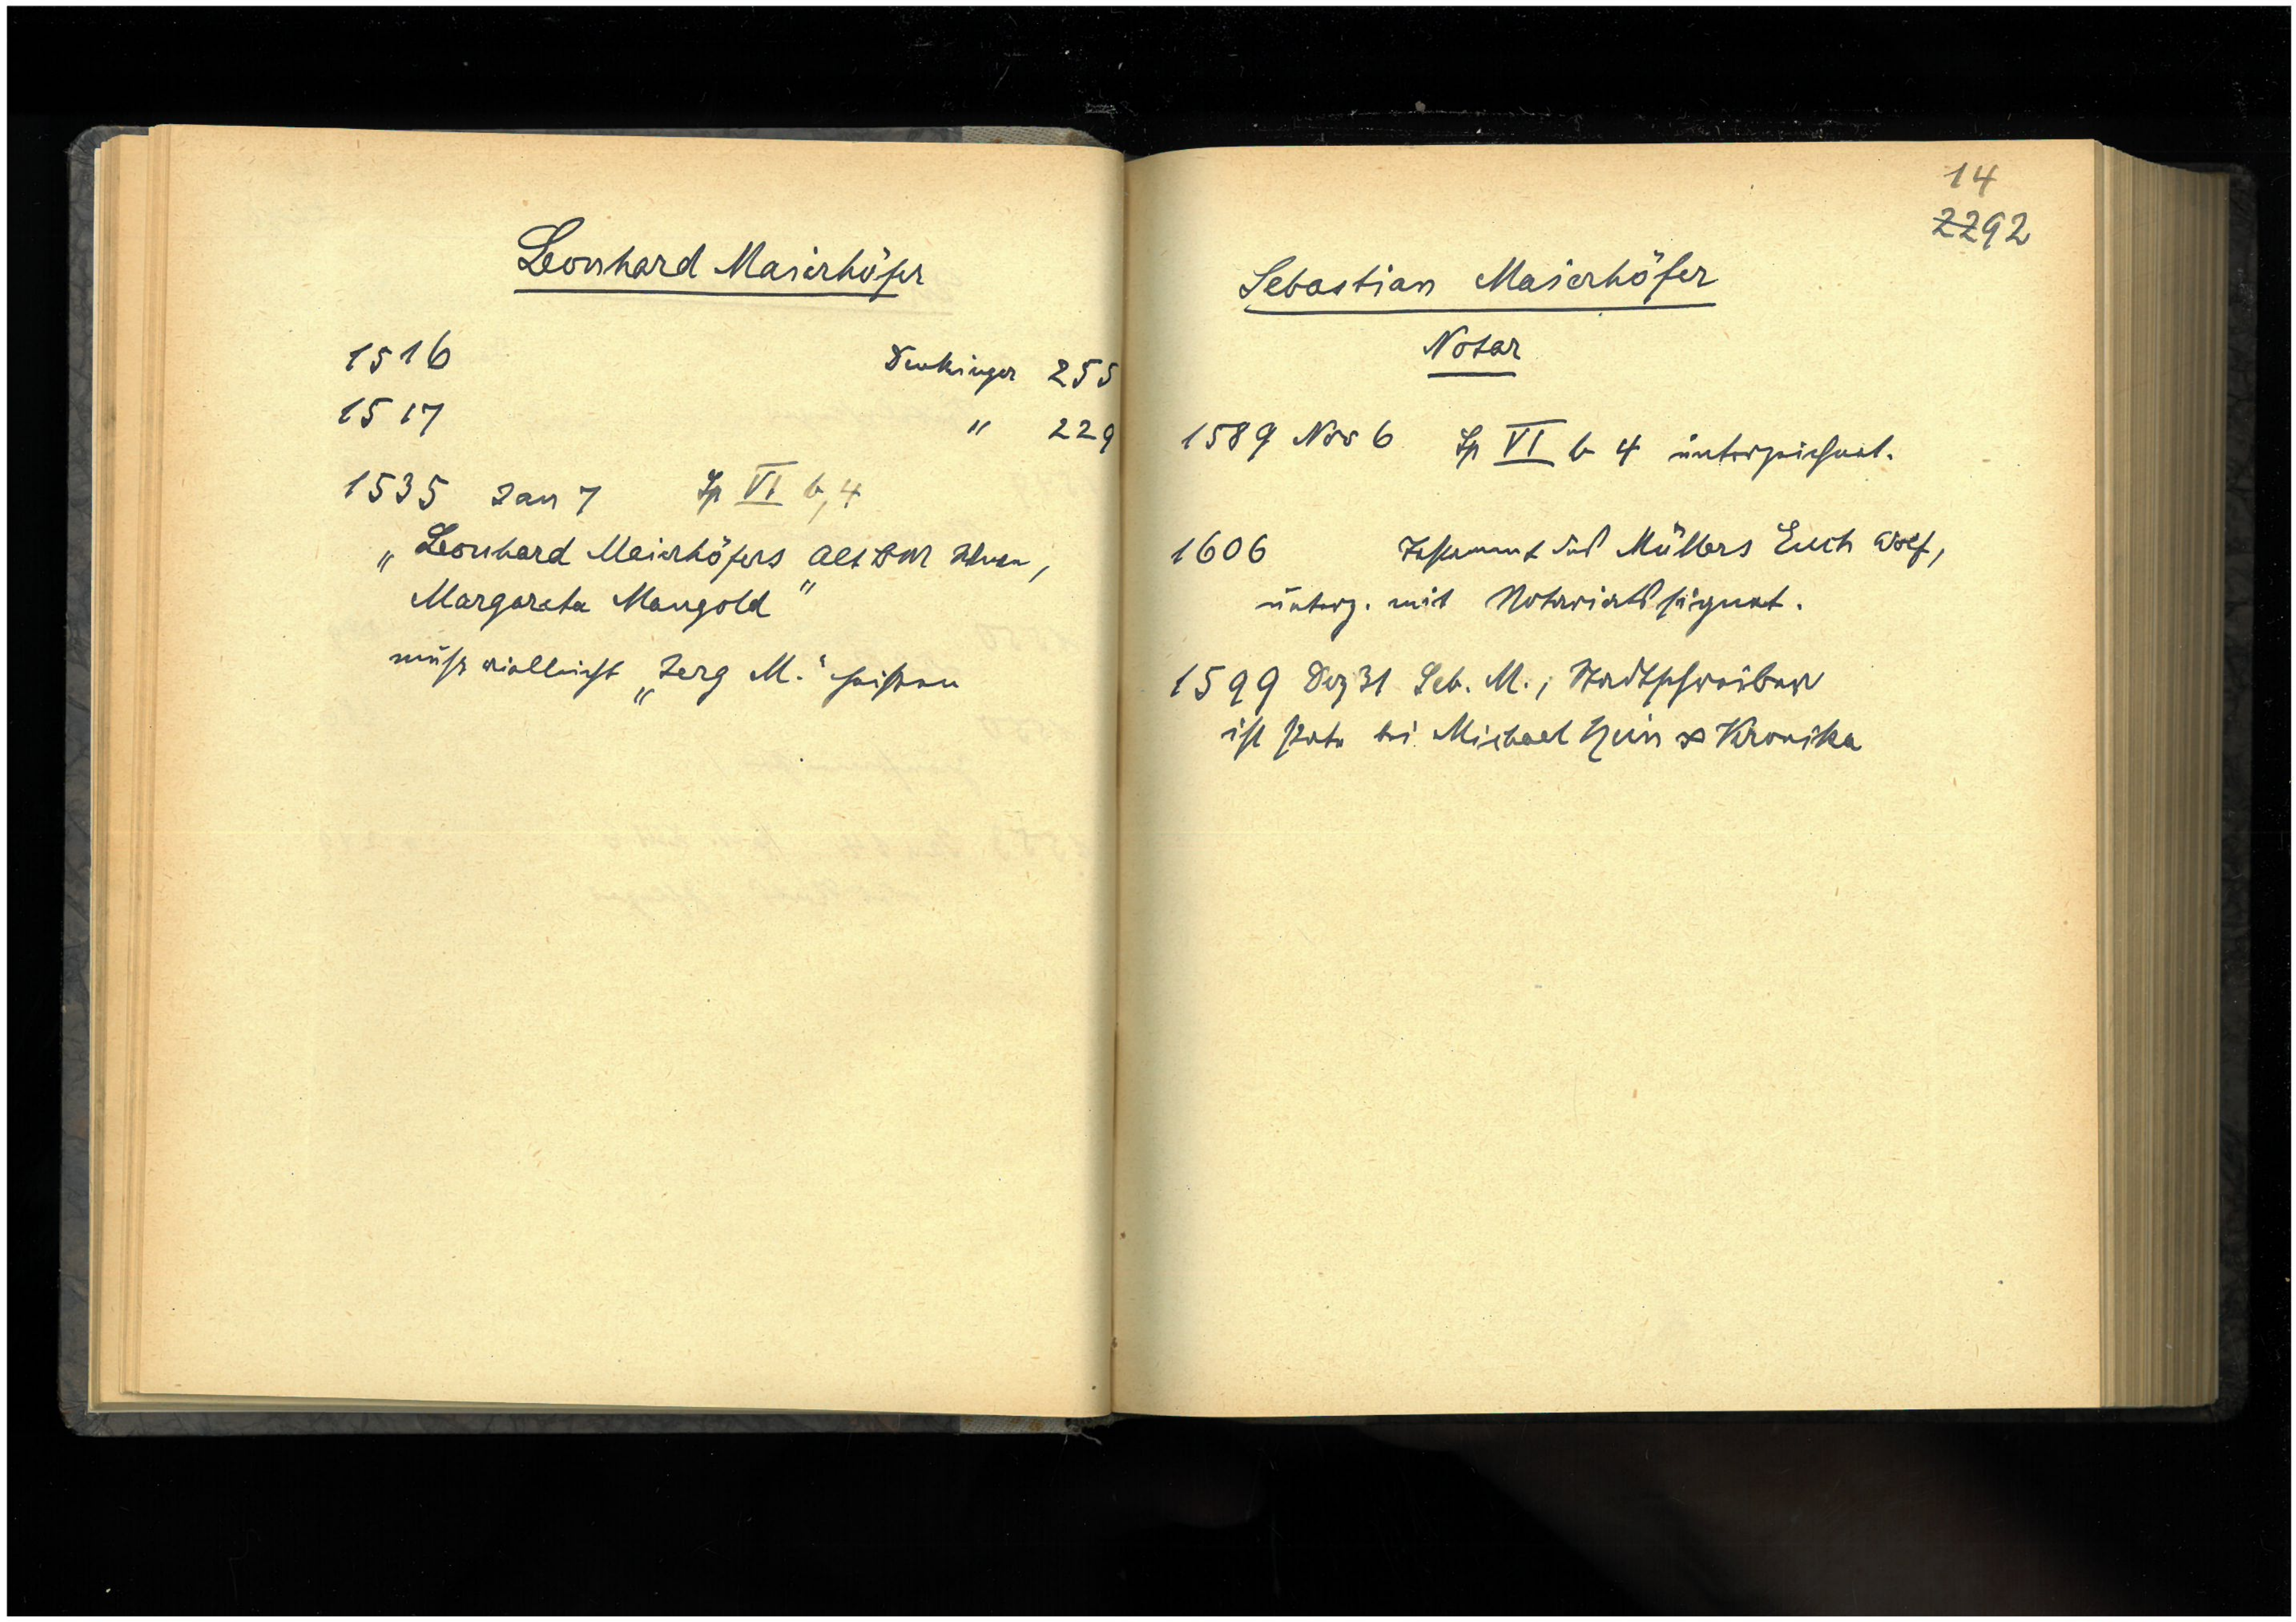 Leonhard Maierhöfer
1516 Denkinger 255
1517 " 229
1535 Jan 7 Sp VI b, 4
„Leonhard Maierhöfers Alt BM
Margareta Mangold"
muß vielleicht „Jerg M." heissen
14
2292
Sebastian Maierhöfer
Notar
1589 Nov 6 Sp VI b 4 unterzeichnet.
1606 Testament des Müllers Euch Wolf,
unterz. mit Notariatssignet.
1599 Dez 31 Seb. M., Stadtschreiber
ist Pate bei Michael ∞ Veronika